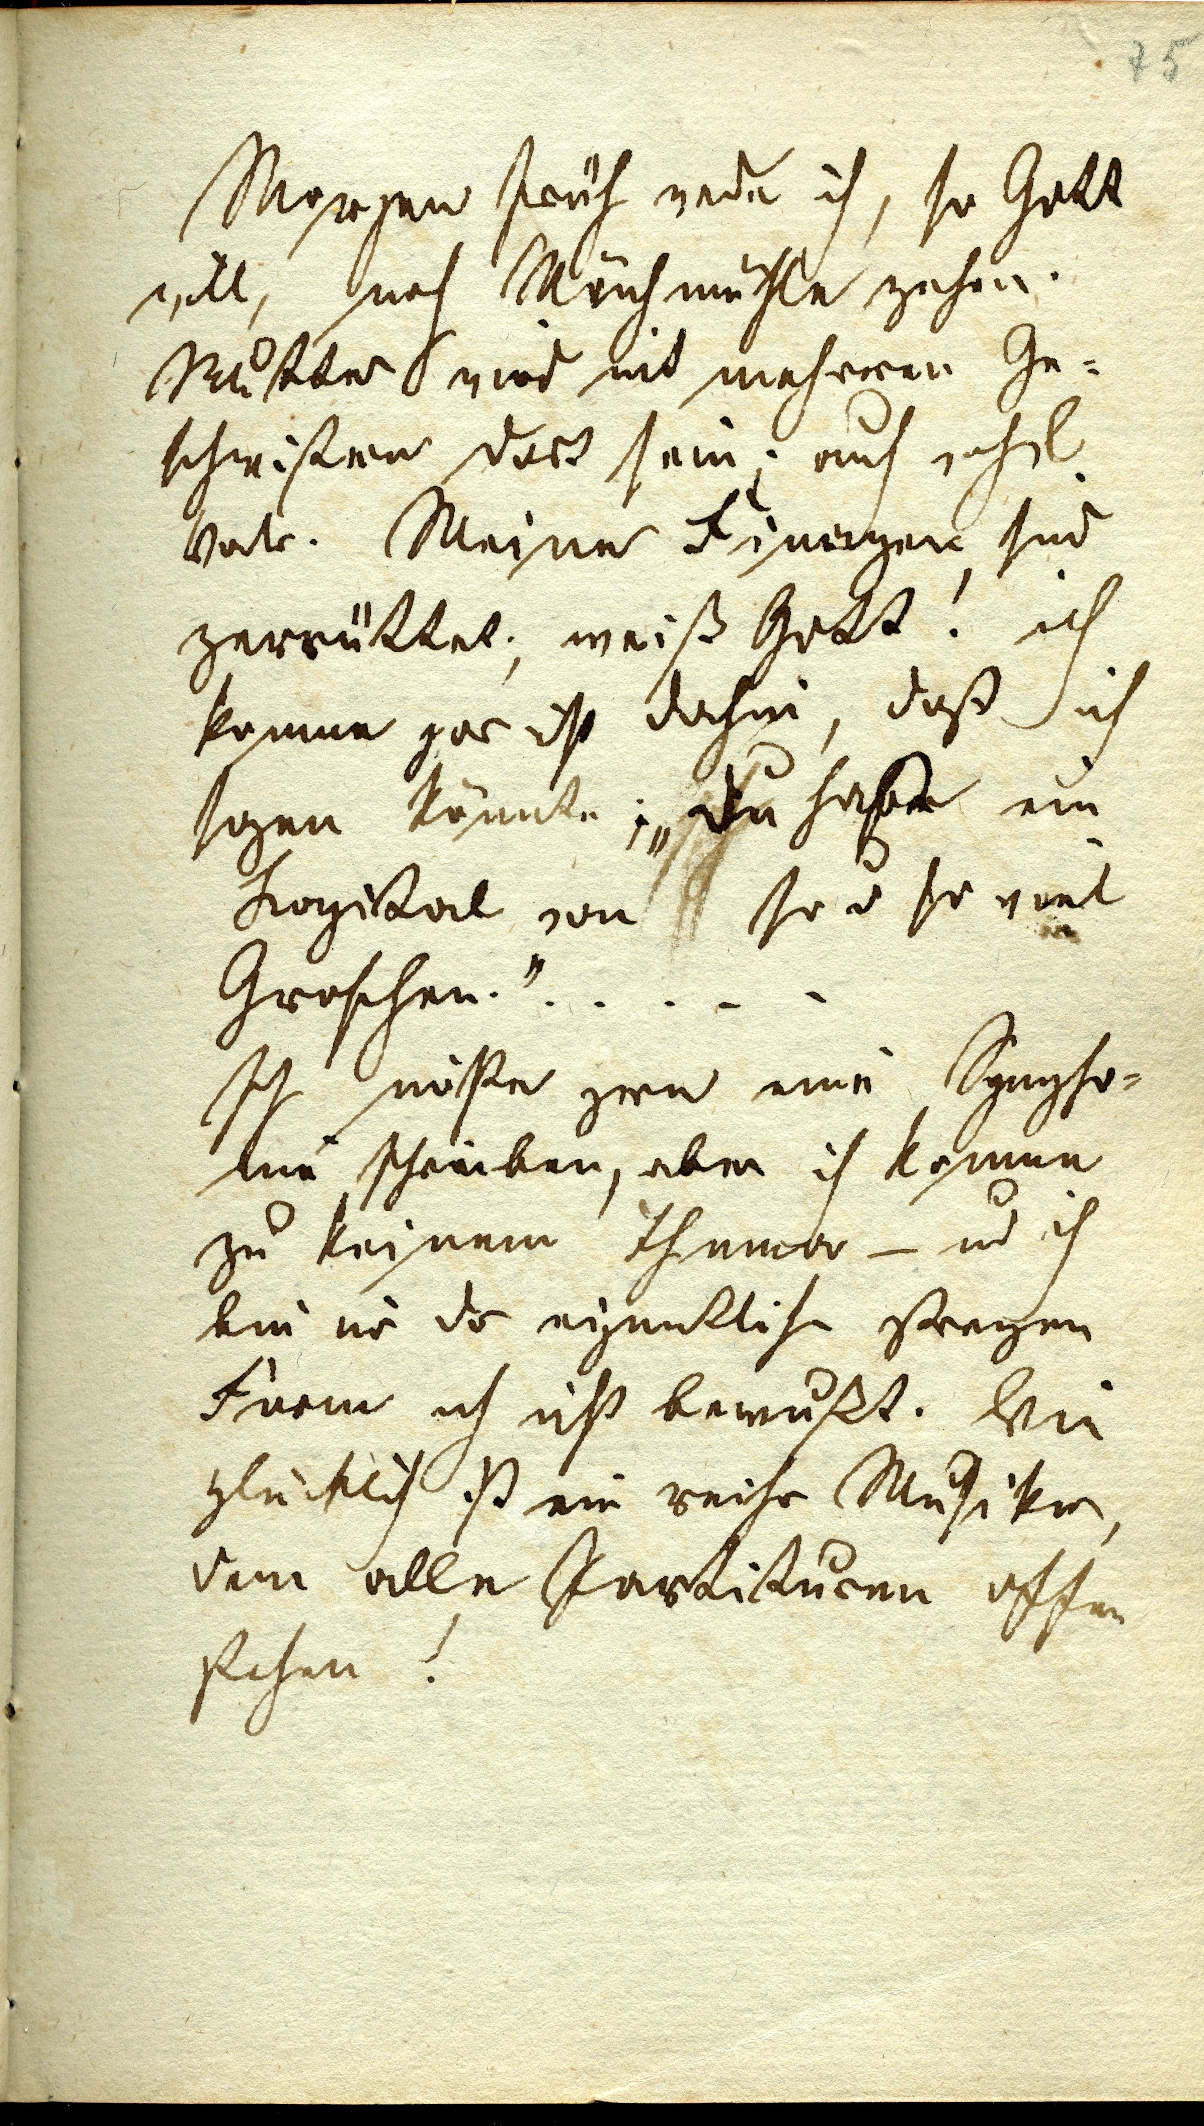 75
Morgen früh werde ich, so Gott
will, nach Mönchmühle gehen.
Mutter wird mit mehreren Ge=
schwistern dort sein; auch wohl
Vater. Meine Finanzen sind
zerrüttet, weiß Gott! ich
komme gar nicht dahin, daß ich
sagen könnte: „Du hast ein
Kapital von so u so viel
Groschen.“ . . . . .
Ich möchte gern eine Sympho=
nie schreiben, aber ich komme
zu keinem Thema – und ich
bin mir der eigentlichen strengen
Form auch nicht bewußt. Wie
glücklich ist ein reicher Musiker,
dem alle Partituren offen
stehen!